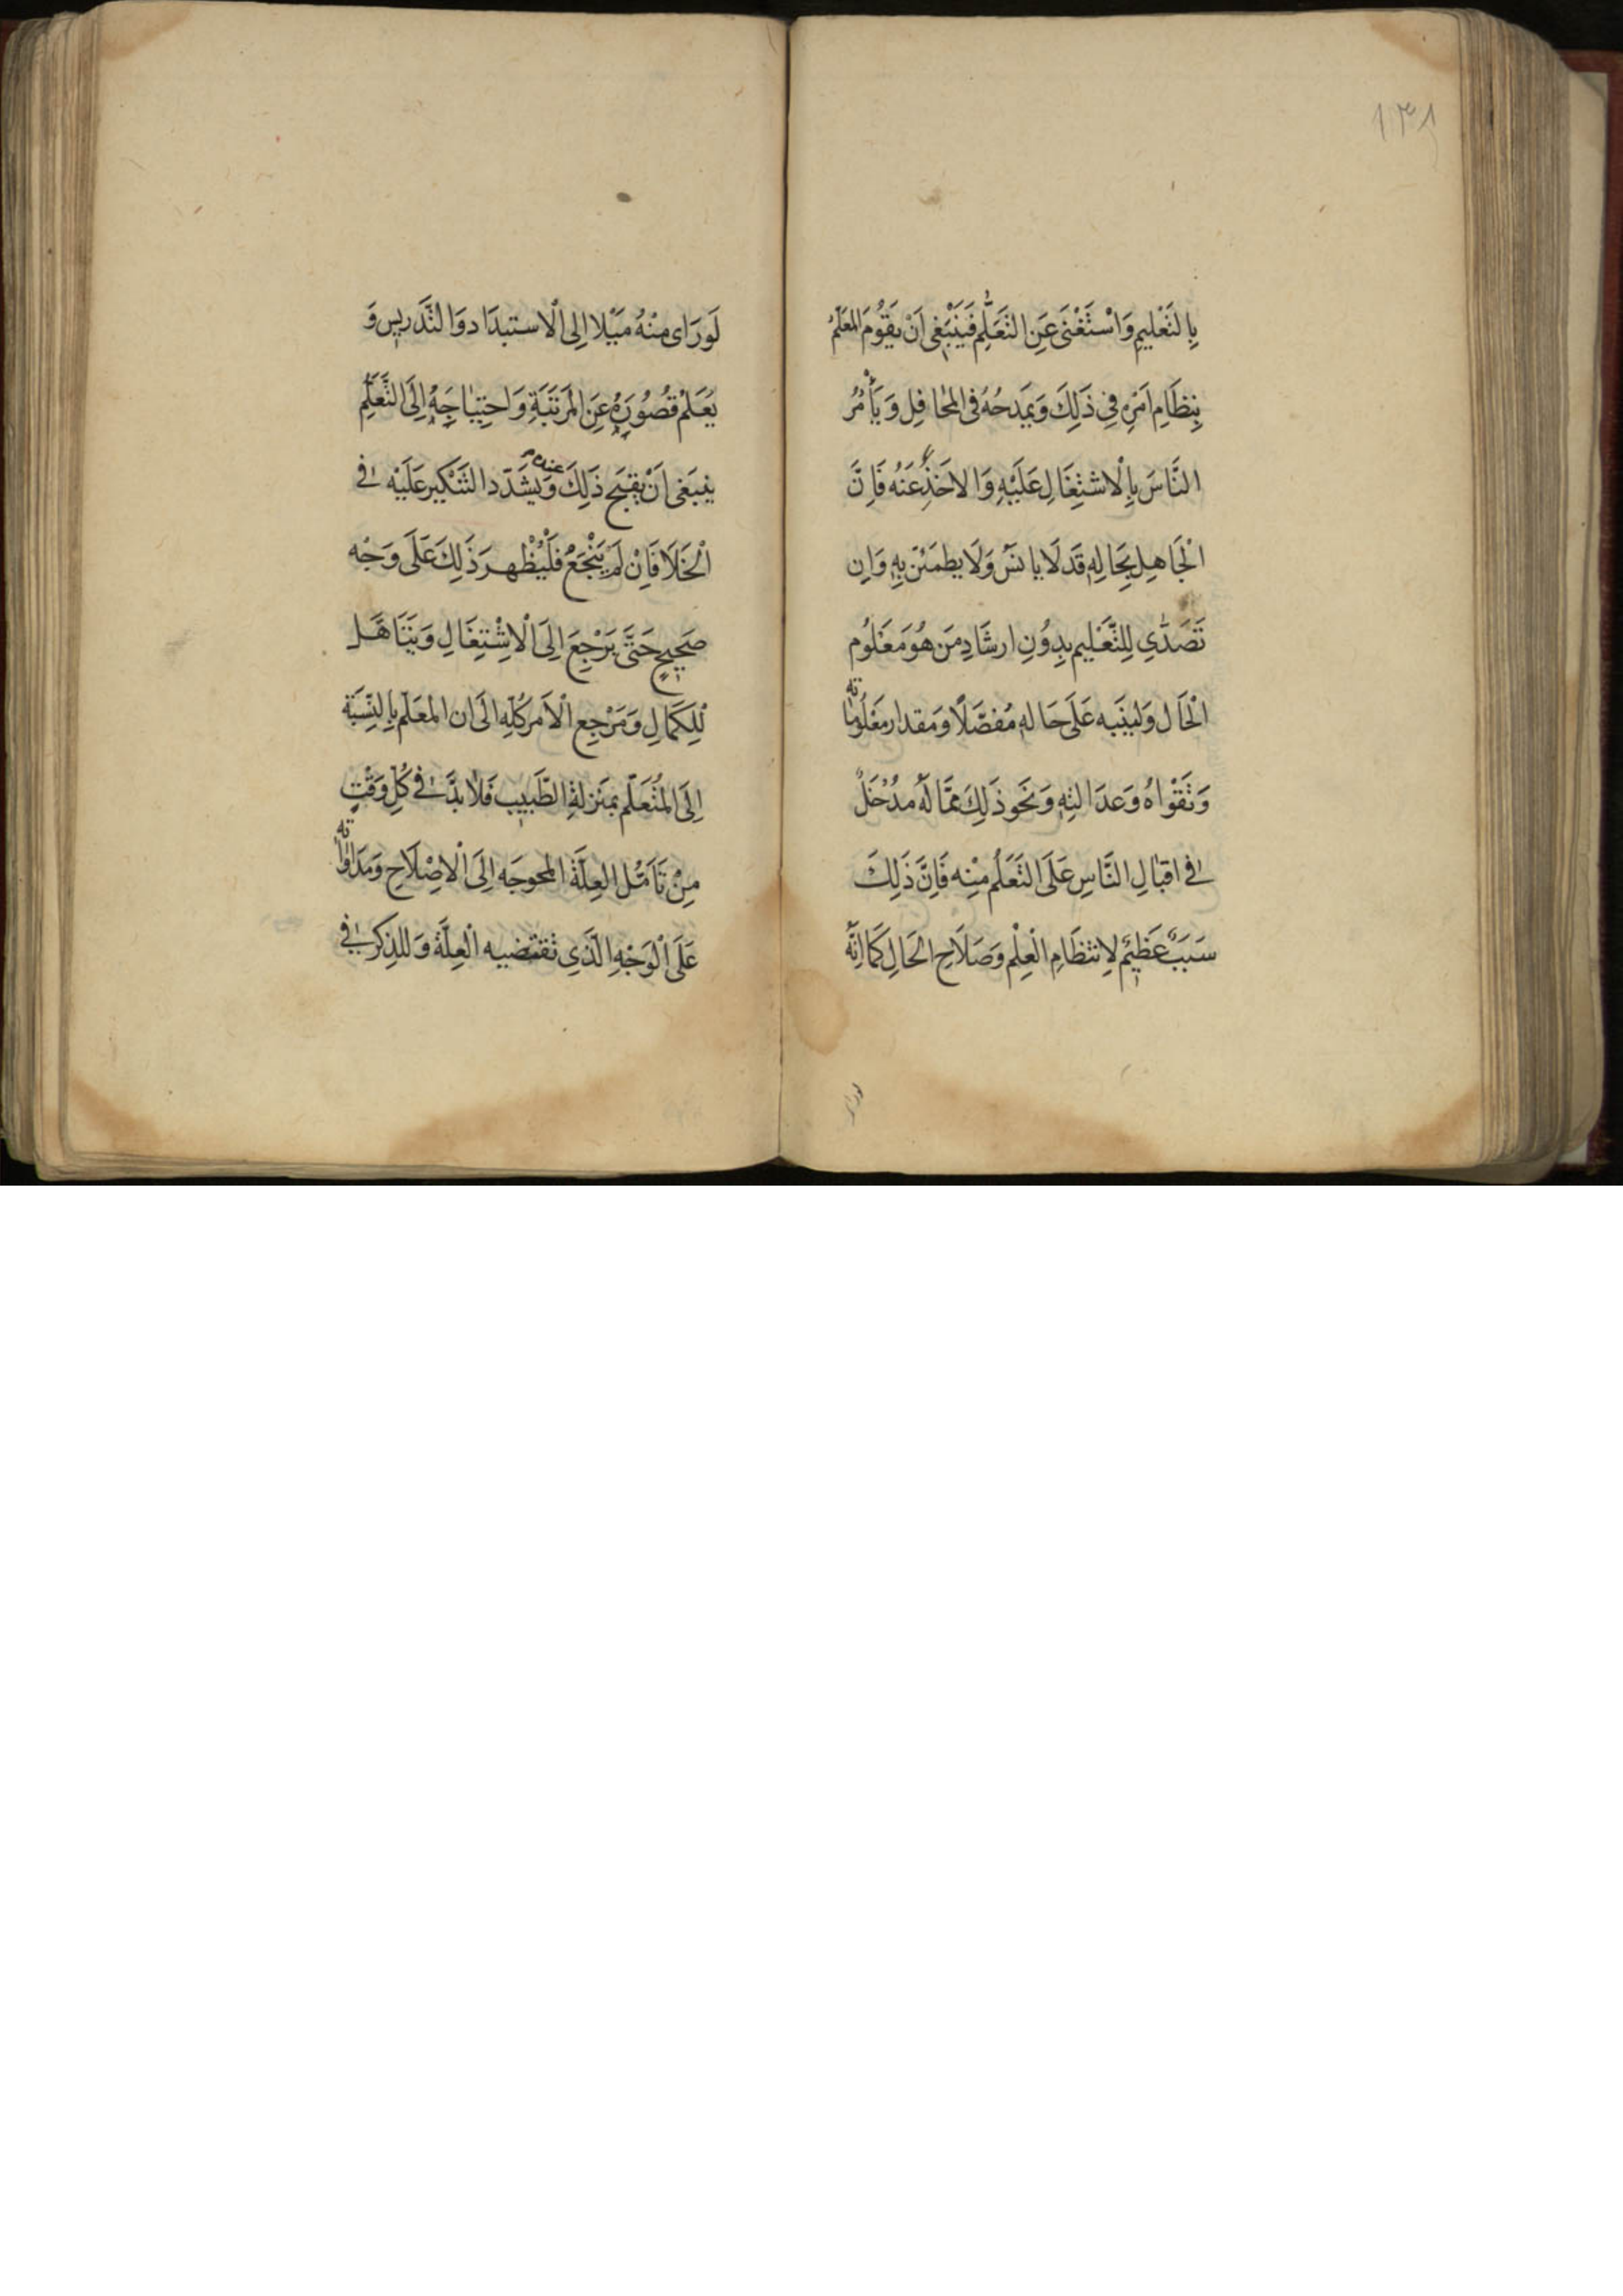 ١٣٨
بِالتَّعْليمِ وَاسْتَغْنَى عَنِ التَّعَلُّمِ فَيَنْبَغِي اَنْ يَقُومَ المعَلّمُ
بِنِظَامِ اَمْرِهِ فِي ذَلِكَ وَيَمدحُهُ فى المحَافِل وَيَأْمُرُ
النَّاسَ بِالْاشتِغَالِ عَلَيْهِ وَالاخَذِ عَنْهُ فَاِنَّ
الْجَاهِل بِحَالِهِ قَد لَا يانَسُ وَلَا يطمَئن بِهِ وَاِن
تَصَدّى لِلتَّعْليم بِدُونِ ارشَادِ مَن هُوَ مَعْلُوم
الْحَال وَليُنَبه عَلَى حَالهِ مُفصَّلًا وَمقدار مَعْلُومَاته
وَتَقْوَاهُ وَعدَالتِهِ وَنَحو ذَلِكَ ممَّا لَهُ مدْخَلٌ
فى اقبَالِ النَّاسِ عَلَى التَعَلُّم مِنْه فَاِنَّ ذَلِكَ
سَبَبٌ عَظيمٌ لِانتظَامِ الْعِلْم وَصَلَاحِ الحَالِ كَمَا اِنَّه
لوراى
لَورَاى مِنْهُ مَيْلا اِلى الْاستبدَاد وَالتَّدَريس وَ
يُعَلَمْ قصُورَهُ عَنِ المَرتَبَةِ وَاحتِيَاجَهُ اِلَى التَّعَلُّمِ
ينبَغى اَنْ يقبَح ذَلِكَ عنده وَيشَدّد النَّكير عَلَيْه فى
الْخَلَا فَاِنْ لَمْ يَنْجَعْ فَلْيُظْهرَ ذَلِكَ عَلَى وَجْه
صَحيحٍ حَتَّى يَرْجِعَ اِلَى الْاشْتِغَالِ وَيَتَاهَّل
لِلكَمَالِ وَمَرْجِع الْاَمر كُلّهِ الَى ان المعَلّم بِالنّسِبَة
اِلَى المُتَعَلّم بمَنزلةِ الطَّبيب فَلَا بُدَّ فى كُلّ وَقْتٍ
مِنْ تَاَمُّل العِلَّة المحوجَه اِلَى الْاِصْلَاحِ وَمدَاوَاته
عَلَى الْوَجْهِ الَّذِي تَقتَضيه الْعِلَّة وَللذِكر فى